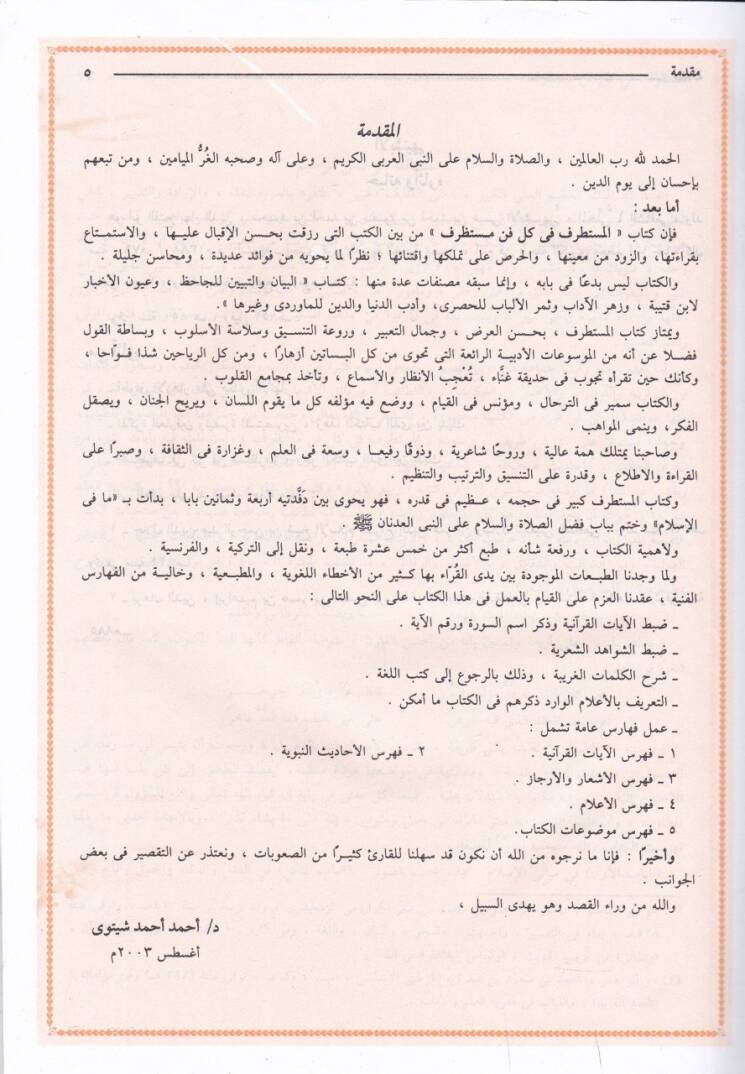 مقدمة ٥
المقدمة
الحمد لله رب العالمين ، والصلاة والسلام على النبى العربى الكريم ، وعلى آله وصحبه الغُرُّ الميامين ، ومن تبعهم
بإحسان إلى يوم الدين .
أما بعد :
فإن كتاب « المستطرف فى كل فن مستظرف » من بين الكتب التى رزقت بحسن الإقبال عليها ، والاستمتاع
بقراءتها، والزود من معينها ، والحرص على تملكها واقتنائها ؛ نظرًا لما يحويه من فوائد عديدة ، ومحاسن جليلة .
والكتاب ليس بدعًا فى بابه ، وإنما سبقه مصنفات عدة منها : كتاب « البيان والتبيين للجاحظ ، وعيون الأخبار
لابن قتيبة ، وزهر الآداب وثمر الألباب للحصرى، وأدب الدنيا والدين للماوردى وغيرها ».
ويمتاز كتاب المستطرف ، بحسن العرض ، وجمال التعبير ، وروعة التنسيق وسلاسة الأسلوب ، وبساطة القول
فضلا عن أنه من الموسوعات الأدبية الرائعة التى تحوى من كل البساتين أزهارًا ، ومن كل الرياحين شذا فواحا ،
وكأنك حين تقرأه تجوب فى حديقة غنَّاء ، تُعْجِبُ الأنظار والأسماع ، وتأخذ بمجامع القلوب .
والكتاب سمير فى الترحال ، ومؤنس فى القيام ، ووضع فيه مؤلفه كل ما يقوم اللسان ، ويريح الجنان ، ويصقل
الفكر، وينمى المواهب .
وصاحبنا يمتلك همة عالية ، وروحًا شاعرية ، وذوقًا رفيعا ، وسعة فى العلم ، وغزارة فى الثقافة ، وصبرًا على
القراءة والاطلاع ، وقدرة على التنسيق والترتيب والتنظيم .
وكتاب المستطرف كبير فى حجمه ، عظيم فى قدره ، فهو يحوى بين دَفَّدتيه أربعة وثمانين بابا ، بدأت بـ «ما فى
الإسلام» وختم بباب فضل الصلاة والسلام على النبى العدنان ﷺ .
ولأهمية الكتاب ، ورفعة شأنه ، طبع أكثر من خمس عشرة طبعة ، ونقل إلى التركية ، والفرنسية .
ولما وجدنا الطبعات الموجودة بين يدى القُرّاء بها كثير من الأخطاء اللغوية ، والمطبعية ، وخالية من الفهارس
الفنية ، عقدنا العزم على القيام بالعمل فى هذا الكتاب على النحو التالى :
ـ ضبط الآيات القرآنية وذكر اسم السورة ورقم الآية .
ـ ضبط الشواهد الشعرية .
ـ شرح الكلمات الغريبة ، وذلك بالرجوع إلى كتب اللغة .
ـ التعريف بالأعلام الوارد ذكرهم فى الكتاب ما أمكن .
ـ عمل فهارس عامة تشمل :
١ ـ فهرس الآيات القرآنية . ٢ ـ فهرس الأحاديث النبوية .
٣ ـ فهرس الأشعار والأرجاز .
٤ ـ فهرس الأعلام .
٥ ـ فهرس موضوعات الكتاب.
وأخيرًا : فإنا ما نرجوه من الله أن نكون قد سهلنا للقارئ كثيرًا من الصعوبات ، ونعتذر عن التقصير فى بعض
الجوانب .
والله من وراء القصد وهو يهدى السبيل ،
د/ أحمد أحمد شيتوى
أغسطس ٢٠٠٣م